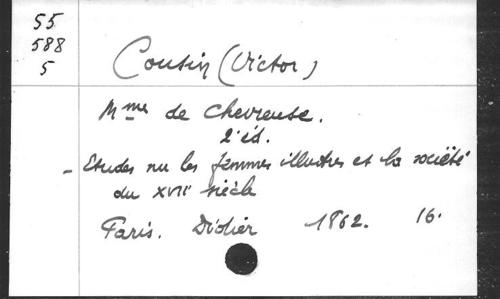 55
588
5
Cousin (Victor)
Mme de Chevreuse.
2e éd.
- Etudes sur les femmes illustres et la société
du XVIIe siècle
Paris. Didier 1862. 16.